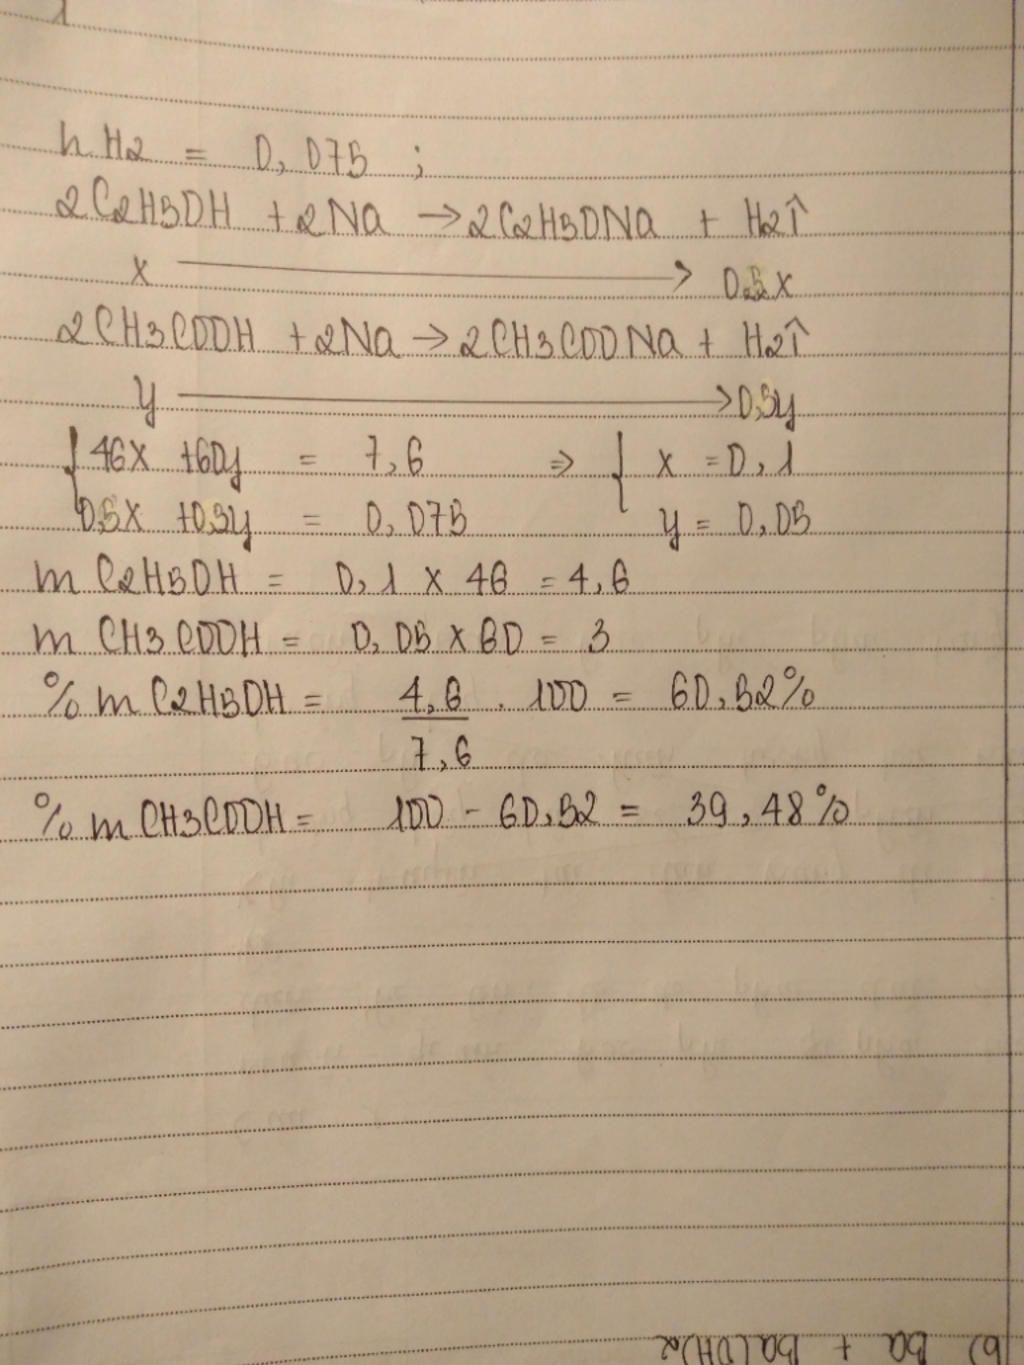 n H2 = 0,075 ;
2C2H5OH + 2Na → 2C2H5ONa + H2↑
x → 0,5x
2CH3COOH + 2Na → 2CH3COONa + H2↑
y → 0,5y
{ 46x + 60y = 7,6 ⇒ { x = 0,1
0,5x + 0,5y = 0,075 y = 0,05
m C2H5OH = 0,1 x 46 = 4,6
m CH3COOH = 0,05 x 60 = 3
% m C2H5OH = 4,6 . 100 = 60,52%
7,6
% m CH3COOH = 100 - 60,52 = 39,48%
b) Ba + Ba(OH)2